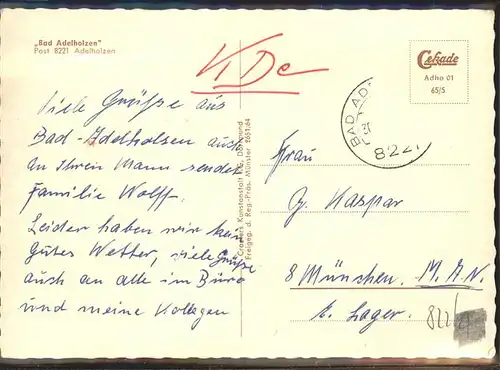 „Bad Adelholzen"
Post 8221 Adelholzen
KDe
Cekade
Adho 01
65/S
BAD AD
822
Viele Grüße aus
Bad-Adelholsen auch
An Ihren Mann sendet
Familie Wolff.
Leider haben wir kein
Gutes Wetter, viele Grüße
auch an alle im Büro
und meine Kollegen
Cramers Kunstanstalt KG, Dortmund
Freigeg. d. Reg.-Präs. Münster 2651/64
Frau
G. Kaspar
8 München. M.A.N.
E. Lager.